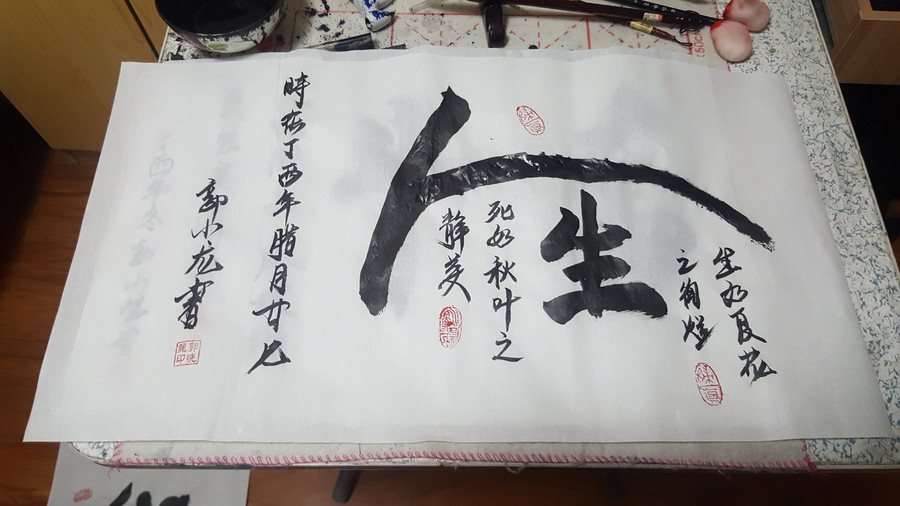 人生
生如夏花
之绚烂
死如秋叶之
静美
時在丁酉年腊月廿七
郭小龙書